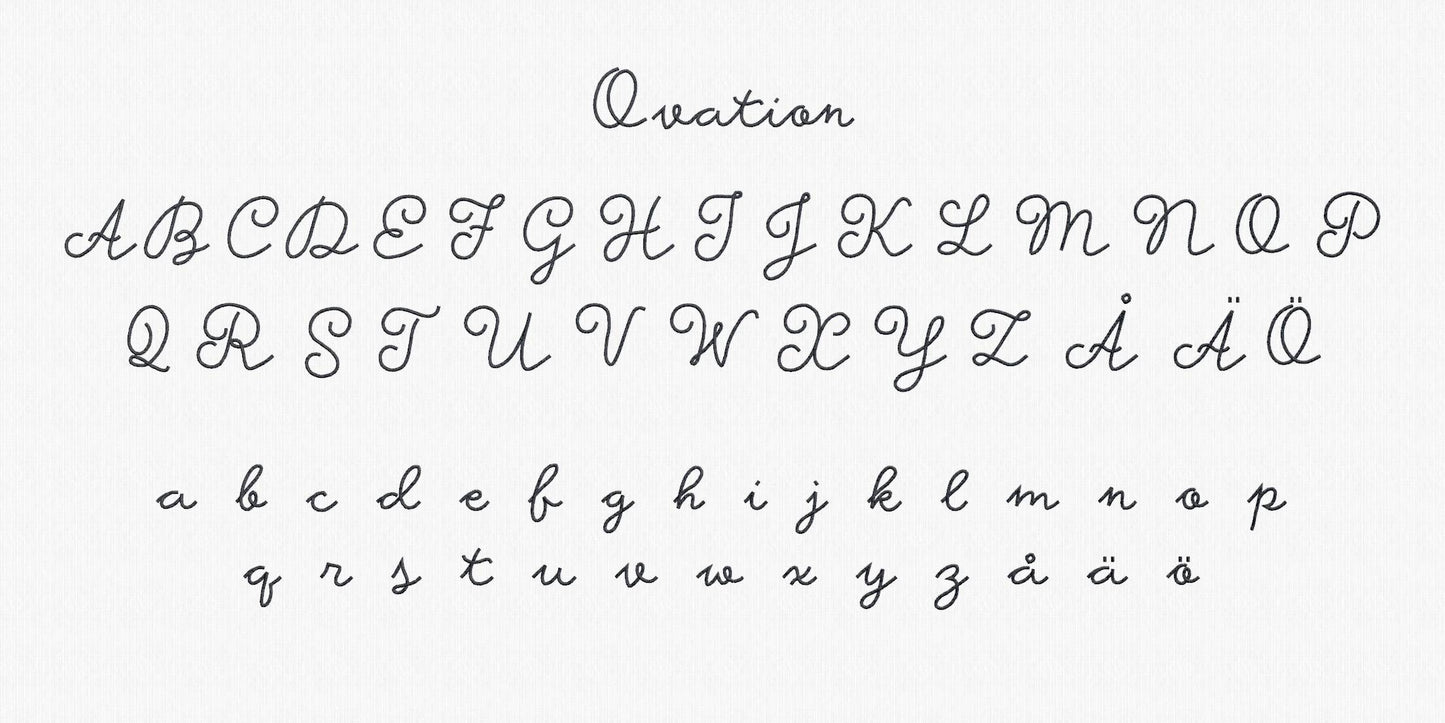 Ovation
A B C D E F G H I J K L M N O P
Q R S T U V W X Y Z Å Ä Ö
a b c d e f g h i j k l m n o p
q r s t u v w x y z å ä ö